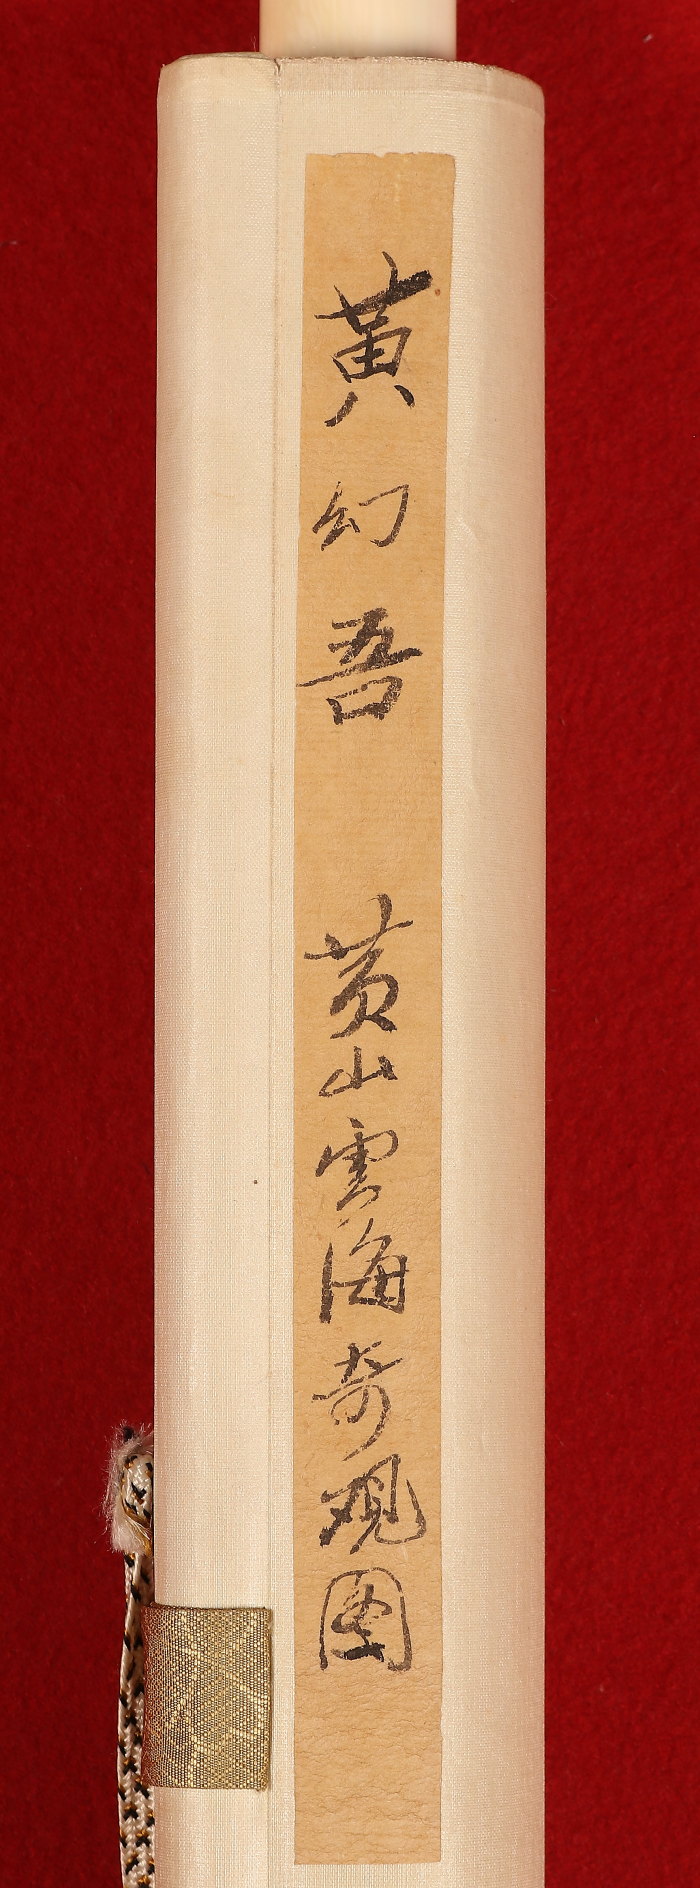 黄幻吾 黄山雲海奇观图